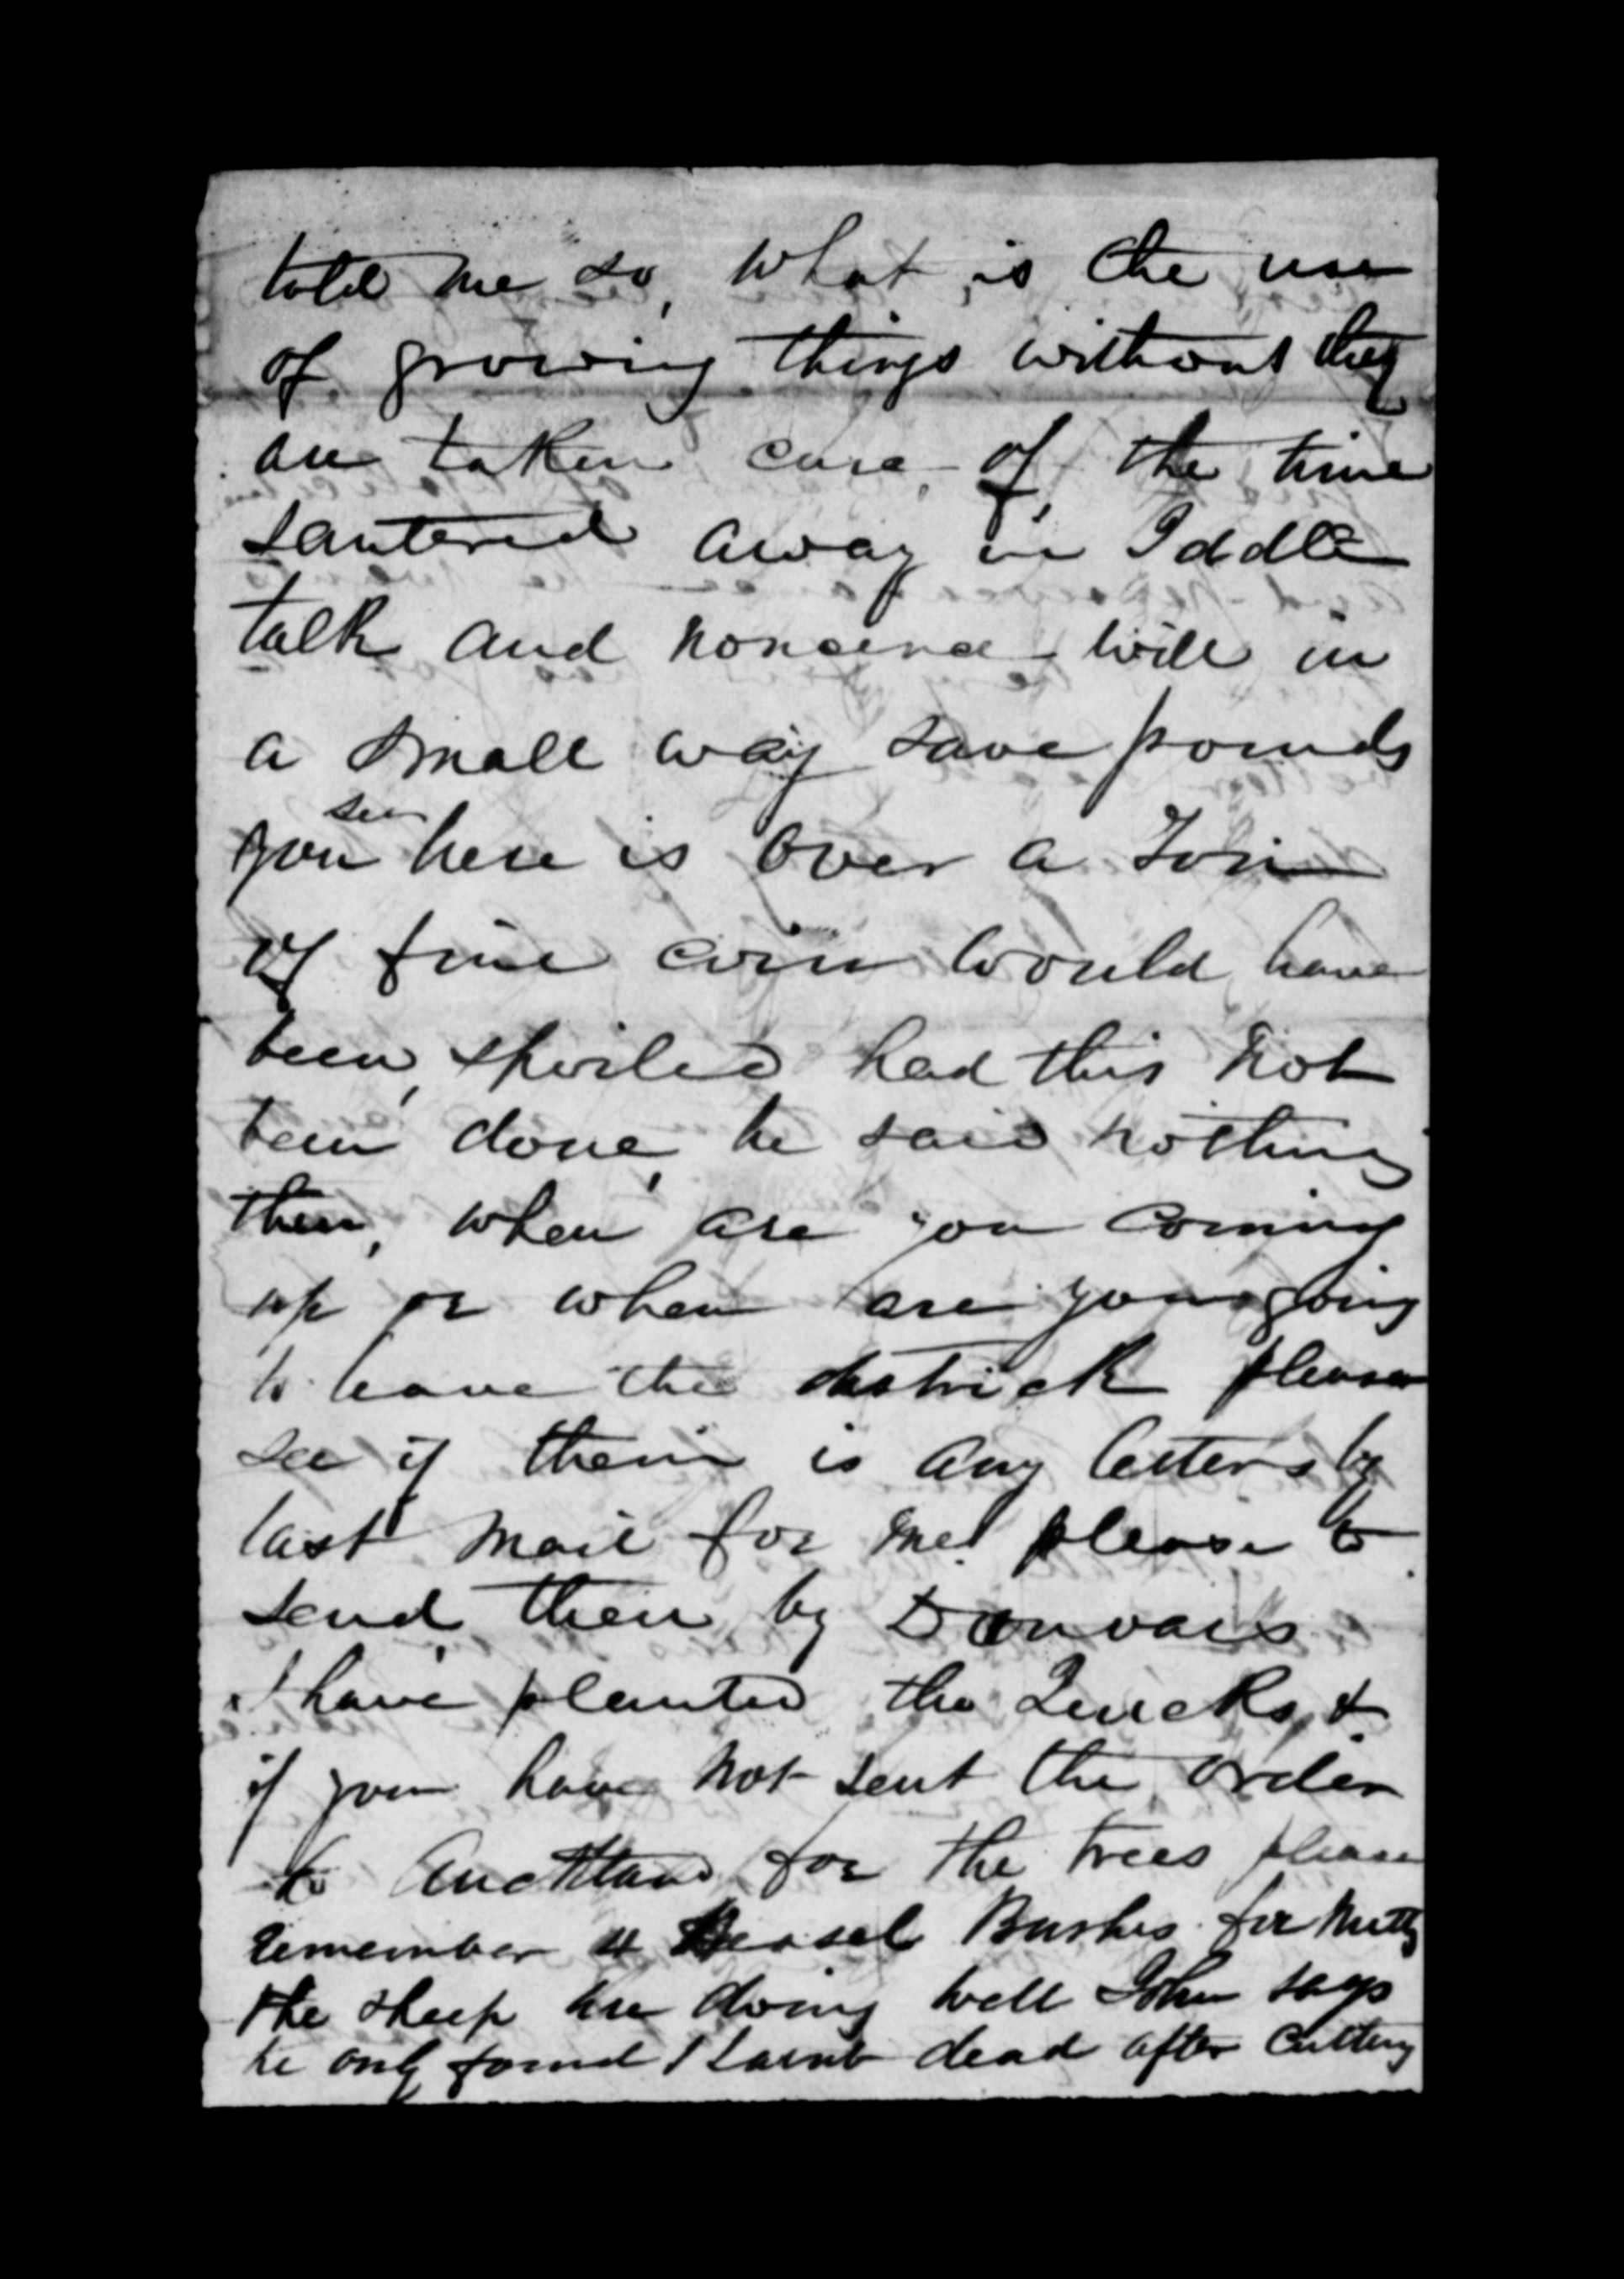 told me so, what is the use
of growing things without they
are taken care of, the time
santered away in Iddle
talk and nonsence will in
a small way save pounds
you see here is over a Ton
of fine corn would have
been, spoiled had this not
been done, he said nothing
then, when are you coming
up or when are you going
to leave the districk please
see if their is any letters by
last mail for me! please to
send them by
I have planted the Quicks, &
if you have not sent the order
to Auckland for the trees please
remember 4 Bushes for
the sheep are doing well John says
he only found 1 Lamb dead after cutting